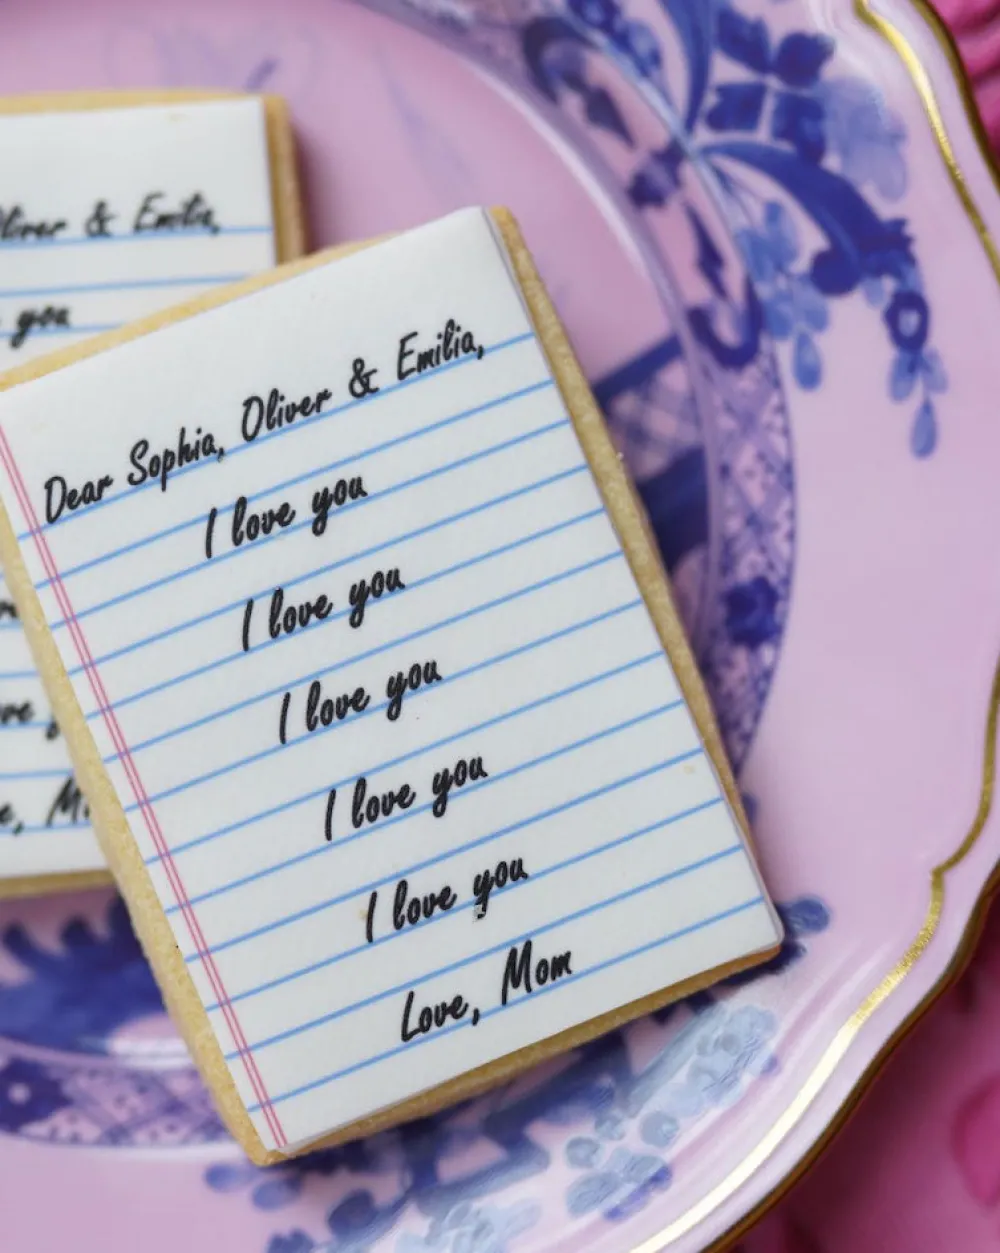 Dear Sophia, Oliver & Emilia,
I love you
I love you
I love you
I love you
I love you
Love, Mom
Oliver & Emilia,
you